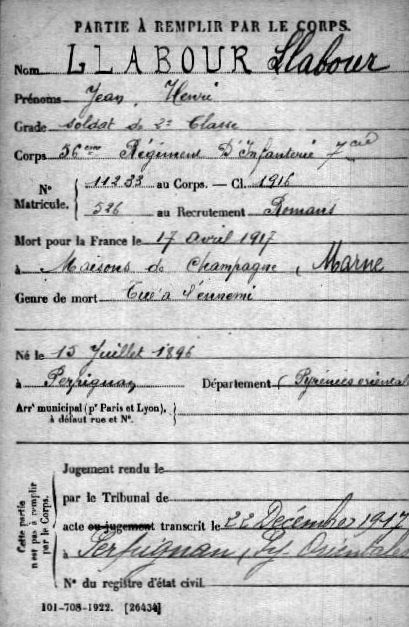 PARTIE À REMPLIR PAR LE CORPS.
Nom LLABOUR Llabour
Prénoms Jean, Henri
Grade Soldat de 2e Classe
Corps 56ème Régiment D'Infanterie 7 Cie
N° Matricule. { 11233 au Corps. — Cl. 1916
526 au Recrutement Romans
Mort pour la France le 17 avril 1917
à Maisons de Champagne, Marne
Genre de mort Tué à l'ennemi
Né le 15 Juillet 1896
à Perpignan Département (Pyrénées oriental
Arrt municipal (pr Paris et Lyon),
à défaut rue et N°. }
Cette partie n'est pas à remplir par le Corps.
Jugement rendu le
par le Tribunal de
acte ou jugement transcrit le 22 Décembre 1917
à Perpignan, Py. Orientales
N° du registre d'état civil.
101-708-1922. [26434]